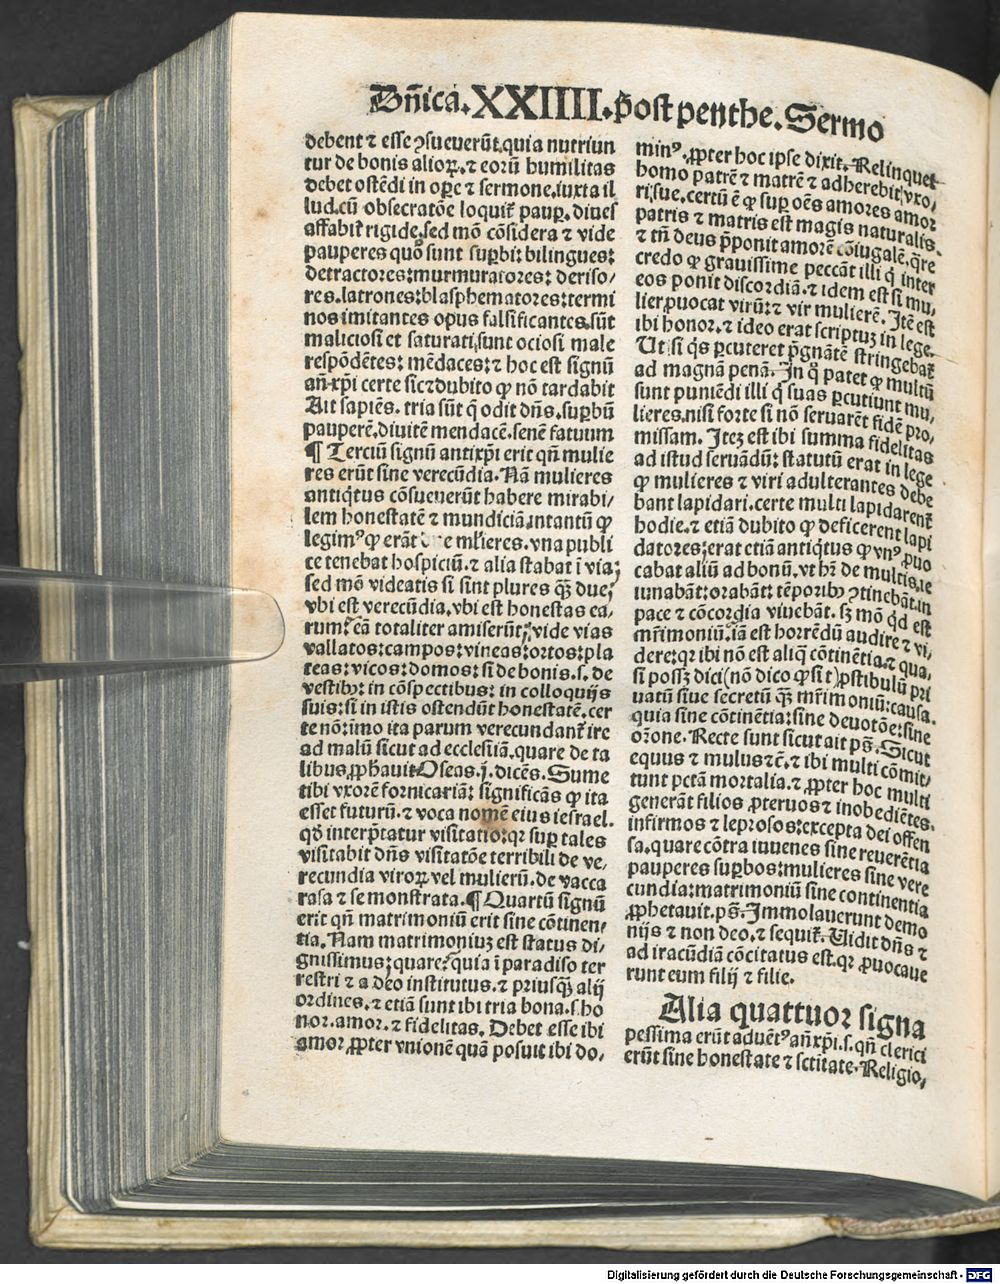 Dn̄ica. XXIIII. p̄ost penthe. Sermo
debent ⁊ esse ꝯsueuerūt. quia nutriun
tur de bonis alioꝝ. ⁊ eorū humilitas
debet ostēdi in oꝑe ⁊ sermone. iuxta il
lud. cū obsecratōe loquit᷑ pauꝑ. diues
affabit᷑ rigide. sed mō cōsidera ⁊ vide
pauperes quō sunt suꝑbi: bilingues:
detractores: murmuratores: deriso/
res. latrones: blasphematores: termi
nos imitantes opus falsificantes. sūt
maliciosi et saturati, sunt ociosi male
respōdētes: mēdaces: ⁊ hoc est signū
an̄xp̄i certe sic ⁊ dubito ꝙ nō tardabit
Ait sapiēs. tria sūt q̄ odit dn̄s. suꝑbū
pauperē. diuitē mendacē. senē fatuum
¶ Terciū signū antixp̄i erit qn̄ mulie
res erūt sine verecūdia. Nā mulieres
antiq̇tus cōsueuerūt habere mirabi/
lem honestatē ⁊ mundiciā intantū ꝙ
legimꝰ ꝙ erāt mĺieres. vna publi
ce tenebat hospiciū. ⁊ alia stabat ī via;
sed mō videatis si sint plures qꝫ̄ due;
vbi est verecūdia, vbi est honestas ea/
rum: eā totaliter amiserūt; vide vias
vallatos: campos: vineas: ortos: pla
teas: vicos: domos: si de bonis. s. de
vestibꝰ: in cōspectibus: in colloquijs
suis: si in istis ostendūt honestatē. cer
te nō: imo ita parum verecundant᷑ ire
ad malū sicut ad ecclesiā. quare de ta
libus ꝓphauit Oseas. j. dicēs. Sume
tibi vxorē fornicariā: significās ꝙ ita
esset futurū. ⁊ voca nomē eius iesrael.
qd̄ interp̄tatur visitatio: qꝛ suꝑ tales
visitabit dn̄s visitatōe terribili de ve/
recundia viroꝝ vel mulierū. de vacca
rasa ⁊ se monstrata. ¶ Quartū signū
erit qn̄ matrimoniū erit sine cōtinen/
tia. Nam matrimoniuꝫ est status di/
gnissimus: quare? quia ī paradiso ter
restri ⁊ a deo institutus. ⁊ priusqꝫ̄ alij
ordines. ⁊ etiā sunt ibi tria bona. s. ho
nor. amor. ⁊ fidelitas. Debet esse ibi
amor ꝓpter vnionē quā posuit ibi do/
minꝰ. ꝓpter hoc ipse dixit. Relinquet
homo patrē ⁊ matrē ⁊ adherebit vxo/
ri sue. certū ē ꝙ suꝑ oēs amores amor
patris ⁊ matris est magis naturalis.
⁊ tn̄ deus p̄ponit amorē cōiugalē. q̄re
credo ꝙ grauissime peccāt illi q̇ inter
eos ponit discordiā. ⁊ idem est si mu/
lier ꝓuocat virū: ⁊ vir mulierē. Itē est
ibi honor. ⁊ ideo erat scriptuꝫ in lege.
Ut si q̇s ꝑcuteret p̄gnātē stringebat᷑
ad magnā penā. In q̊ patet ꝙ multū
sunt puniēdi illi q̇ suas ꝑcutiunt mu/
lieres. nisi forte si nō seruarēt fidē pro/
missam. Iteꝫ est ibi summa fidelitas
ad istud seruādū: statutū erat in lege
ꝙ mulieres ⁊ viri adulterantes debe
bant lapidari. certe multi lapidarent᷑
hodie. ⁊ etiā dubito ꝙ deficerent lapi
datores: erat etiā antiq̇tus ꝙ vnꝰ ꝓuo
cabat aliū ad bonū. vt hr̄ de multis. ie
iunabāt: orabāt: tēporibꝰ ꝯtinebāt. in
pace ⁊ cōcordia viuebāt. sꝫ mō qd̄ est
mr̄imoniū. iā est horrēdū audire ⁊ vi/
dere: qꝛ ibi nō est aliq̄ cōtinētia. ⁊ qua/
si possꝫ dici (nō dico ꝙ sit) ꝓstibulū pri
uatū siue secretū qꝫ̄ mr̄imoniū: causa.
quia sine cōtinētia: sine deuotōe: sine
or̄one. Recte sunt sicut ait pš. Sicut
equus ⁊ mulus ⁊c̄. ⁊ ibi multi cōmit/
tunt pctā mortalia. ⁊ ꝓpter hoc multi
generāt filios ꝓteruos ⁊ inobediētes.
infirmos ⁊ leprosos: excepta dei offen
sa. quare cōtra iuuenes sine reuerētia
pauperes suꝑbos: mulieres sine vere
cundia: matrimoniū sine continentia
ꝓphetauit. pš. Immolauerunt demo
nijs ⁊ non deo. ⁊ sequit᷑. Uidit dn̄s ⁊
ad iracūdiā cōcitatus est. qꝛ ꝓuocaue
runt eum filij ⁊ filie.
Alia quattuor signa
pessima erūt aduētꝰ an̄xp̄i. s. qn̄ clerici
erūt sine honestate ⁊ sctitate. Religio/
Digitalisierung gefördert durch die Deutsche Forschungsgemeinschaft - DFG